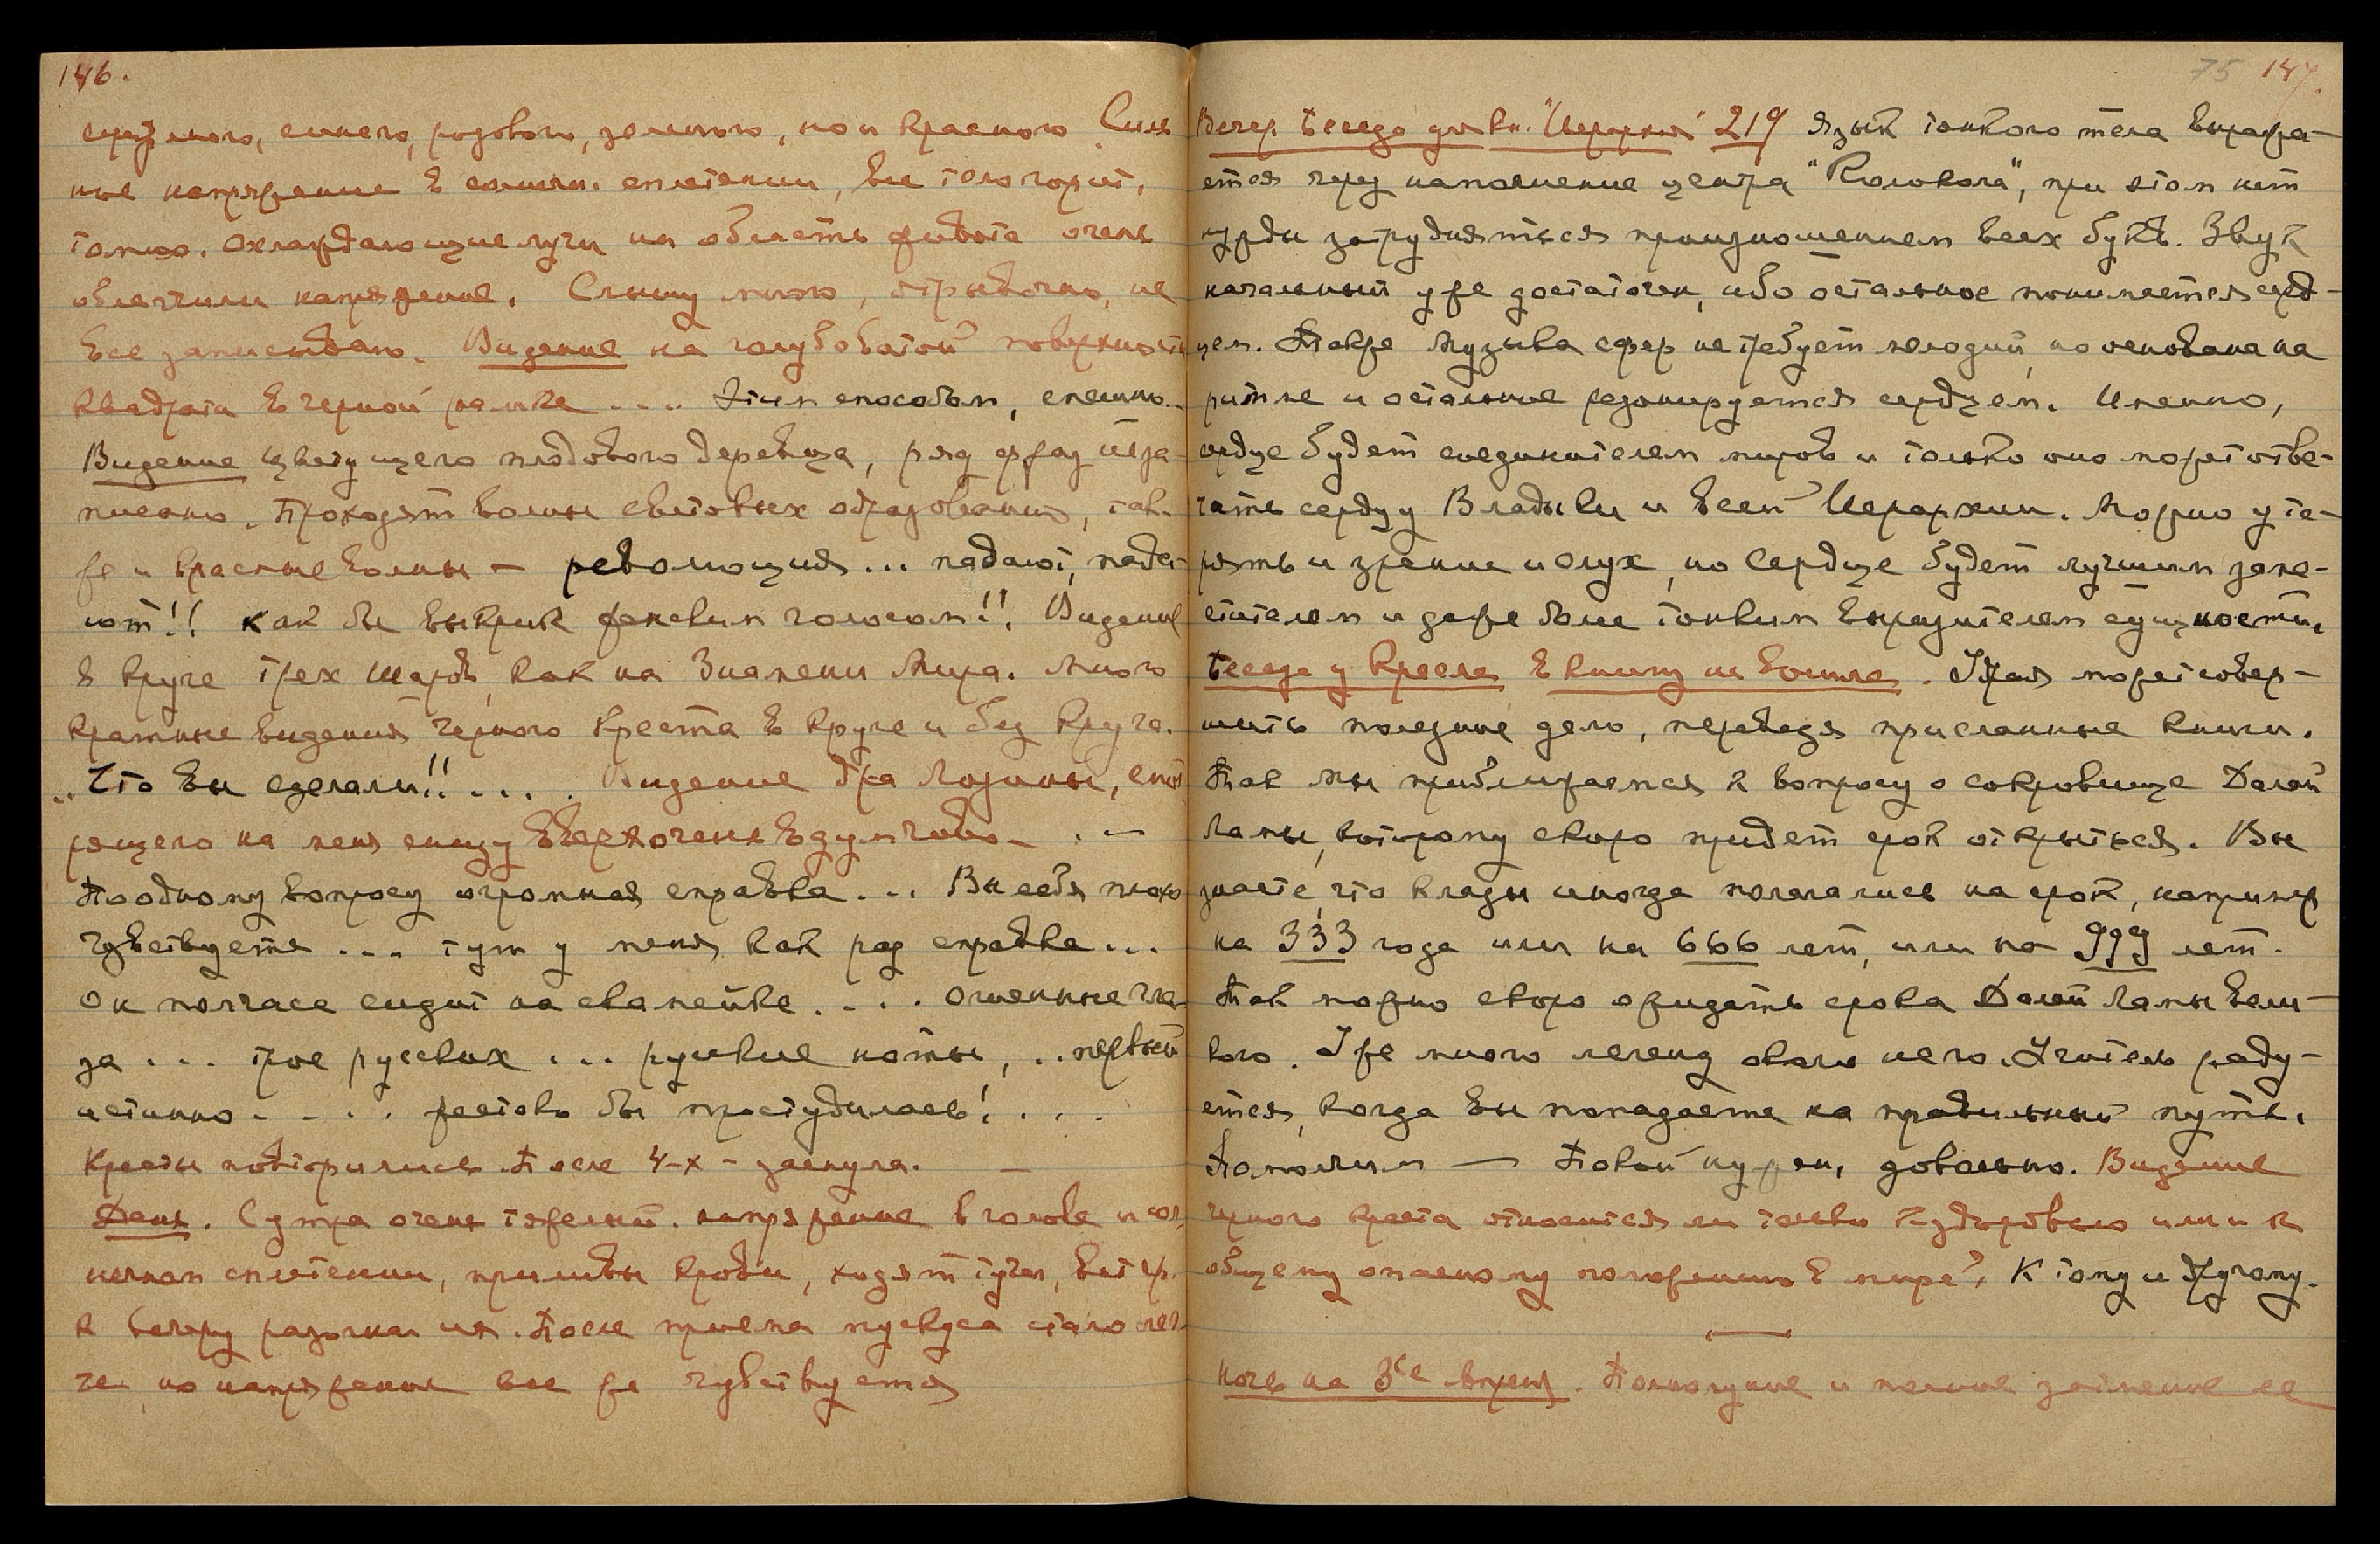 146.
серебряного, синего, розового, зеленого, но и красного. Силь
ное напряжение в солнечн. сплетении, все тело горит,
томлю. Охлаждающие лучи на область живота очень
облегчили напряжение. Слышу много, отрывочно, не
все записываю. Видение на голубоватой поверхности
квадрата в черной рамке .... Этим способом, спешно..
Видение цветущего плодового деревца, ряд фраз не за-
писано. Проходят волны световых образований, так-
же и красные волны – революция... падают, пада-
ют!! как бы выкрик женским голосом!!. Видение
в круге трех шаров, как на Знамени Мира. Много
кратные видения черного креста в круге и без круга.
„Что вы сделали!! .... Видение д-ра Лозины, смот
рящего на меня снизу вверх очень вдумчиво – . –
По одному вопросу огромная справка ... Вы себя плохо
чувствуете ... тут у меня как раз справка...
Он полчаса сидит на скамейке .... огненные гла-
за ... трое русских ... русские ноты, .. первый
истинно - - - . . жестоко бы простудилась! . . .
Кресты повторились. После 4-х – заснула. –
День. С утра очень тяжелый. напряжение в голове и сол.
нечном сплетении, приливы крови, ходят тучи, ветер.
к вечеру разогнал их. После приема мускуса стало лег-
че но напряжение все же чувствуется
75 147.
Вечер. Беседа для кн. "Иерархия" 219 Язык тонкого тела выража-
ется через наполнение центра "Колокола", при этом нет
нужды затрудняться произношением всех букв. Звук
начальный уже достаточен, ибо остальное понимается серд-
цем. Также Музыка сфер не требует мелодий, но основана на
ритме и остальное резонируется сердцем. Именно,
сердце будет соединителем миров и только оно может отве-
чать сердцу Владыки и всей Иерархии. Можно уте-
рять и зрение и слух, но Сердце будет лучшим заме-
стителем и даже более тонким выразителем сущности.
Беседа у кресла в книгу не вошла. Удрая может совер-
шить полезное дело, переводя присланные книги.
Так мы приближаемся к вопросу о сокровище Далай
Ламы, которому скоро придет срок открыться. Вы
знаете, что клады иногда полагались на срок, например
на 333 года или на 666 лет, или на 999 лет.
Так можно скоро ожидать срока Далай Ламы Вели-
кого. Уже много легенд около него. Учитель раду-
ется, когда вы попадаете на правильный путь.
Помолчим – Покой нужен, довольно. Видение
черного креста относится ли только к здоровью или и к
общему опасному положению в мире?. К тому и другому.
Ночь на 3ье апреля. Полнолуние и полное затмение ее